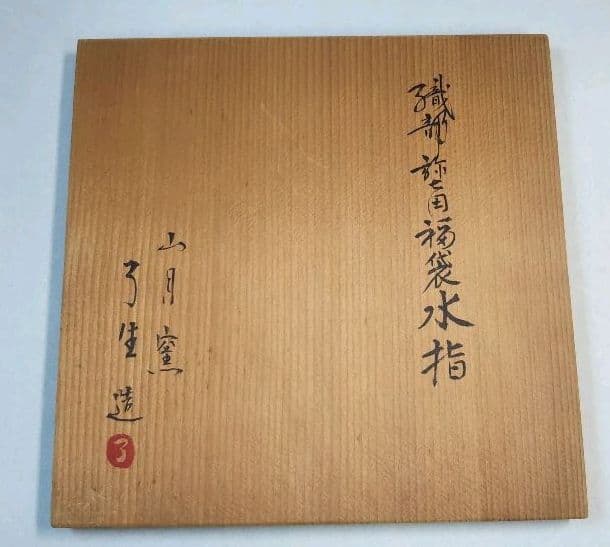 織部弥七田福袋水指
山月窯
了生造
了